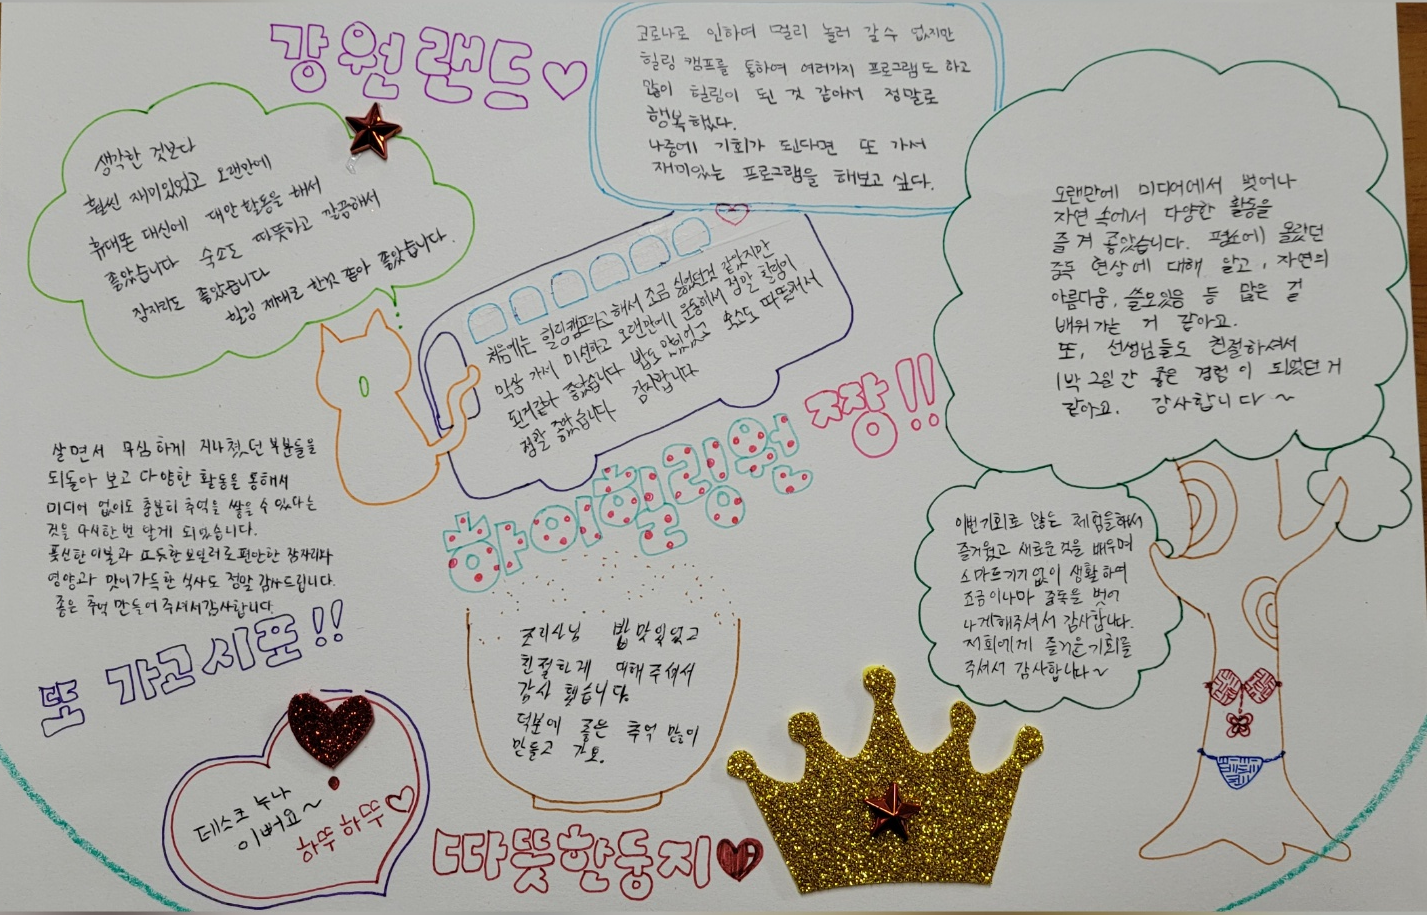 강원랜드♡
코로나로 인하여 멀리 놀러 갈 수 없지만
힐링 캠프를 통하여 여러가지 프로그램도 하고
많이 힐링이 된 것 같아서 정말로
행복했다.
나중에 기회가 된다면 또 가서
재미있는 프로그램을 해보고 싶다.
생각한 것보다
훨씬 재미있었고 오랜만에
휴대폰 대신에 대안활동을 해서
좋았습니다 숙소도 따뜻하고 깔끔해서
잠자리도 좋았습니다
힐링 제대로 한것 같아 좋았습니다.
오랜만에 미디어에서 벗어나
자연 속에서 다양한 활동을
즐겨 좋았습니다. 평소에 몰랐던
중독 현상에 대해 알고, 자연의
아름다움, 쓸모있음 등 많은 걸
배워가는 거 같아요.
또, 선생님들도 친절하셔서
1박 2일간 좋은 경험이 되었던 거
같아요. 감사합니다~
처음에는 힐링캠프라고 해서 조금 싫었던것 같았지만
막상 가서 미션하고 오랜만에 운동해서 정말 힐링이
된거같아 좋았습니다 밥도 맛있었고 숙소도 따뜻해서
정말 좋았습니다 감사합니다
하이힐링원 짱!!
살면서 무심하게 지나쳤던 부분들을
되돌아 보고 다양한 활동을 통해서
미디어 없이도 충분히 추억을 쌓을 수 있다는
것을 다시한번 알게 되었습니다.
푹신한 이불과 따듯한 보일러로 편안한 잠자리와
영양과 맛이 가득한 식사도 정말 감사드립니다.
좋은 추억 만들어 주셔서 감사합니다.
또 가고시포!!
이번기회로 많은 체험을해서
즐거웠고 새로운것을 배우며
스마트기기없이 생활하여
조금이나마 중독을 벗어
나게해주셔서 감사합니다.
저희에게 즐거운기회를
주셔서 감사합니다~
조리사님 밥 맛있었고
친절하게 대해주셔서
감사했습니다.
덕분에 좋은 추억 많이
만들고 가요.
데스크 누나
이뻐요~
하뚜하뚜♡
따뜻한둥지♥